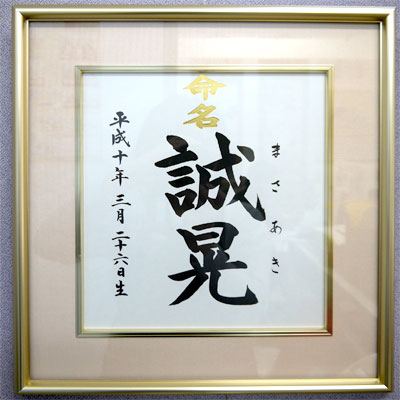 命名
まさあき
誠晃
平成十年三月二十六日生